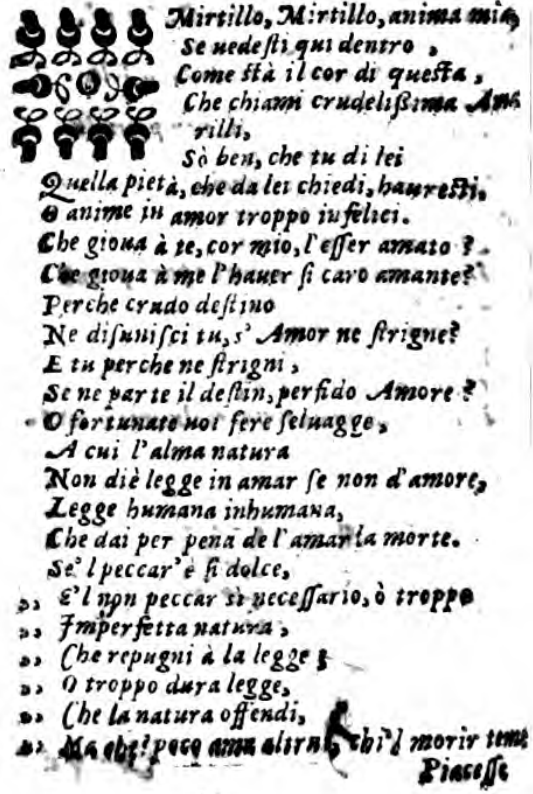 Mirtillo, Mirtillo, anima mia,
Se uedeſti qui dentro,
Come ſtà il cor di queſta,
Che chiami crudelißima Ama
rilli,
Sò ben, che tu di lei
Quella pietà, che da lei chiedi, haureſti.
O anime in amor troppo infelici.
Che gioua à te, cor mio, l'eſſer amato?
Che gioua à me l'hauer ſi caro amante?
Perche crudo deſtino
Ne diſuniſci tu, s' Amor ne ſtrigne?
E tu perche ne ſtrigni,
Se ne parte il deſtin, perfido Amore?
O fortunate uoi fere ſeluagge,
A cui l'alma natura
Non diè legge in amar ſe non d'amore,
Legge humana inhumana,
Che dai per pena de l'amar la morte.
Se'l peccar' è ſi dolce,
,, E'l non peccar sì neceſſario, ò troppo
,, Imperfetta natura,
,, Che repugni à la legge;
,, O troppo dura legge,
,, Che la natura offendi,
,, Ma che? poco ama altrui, ch'il morir teme
Piaceſſe